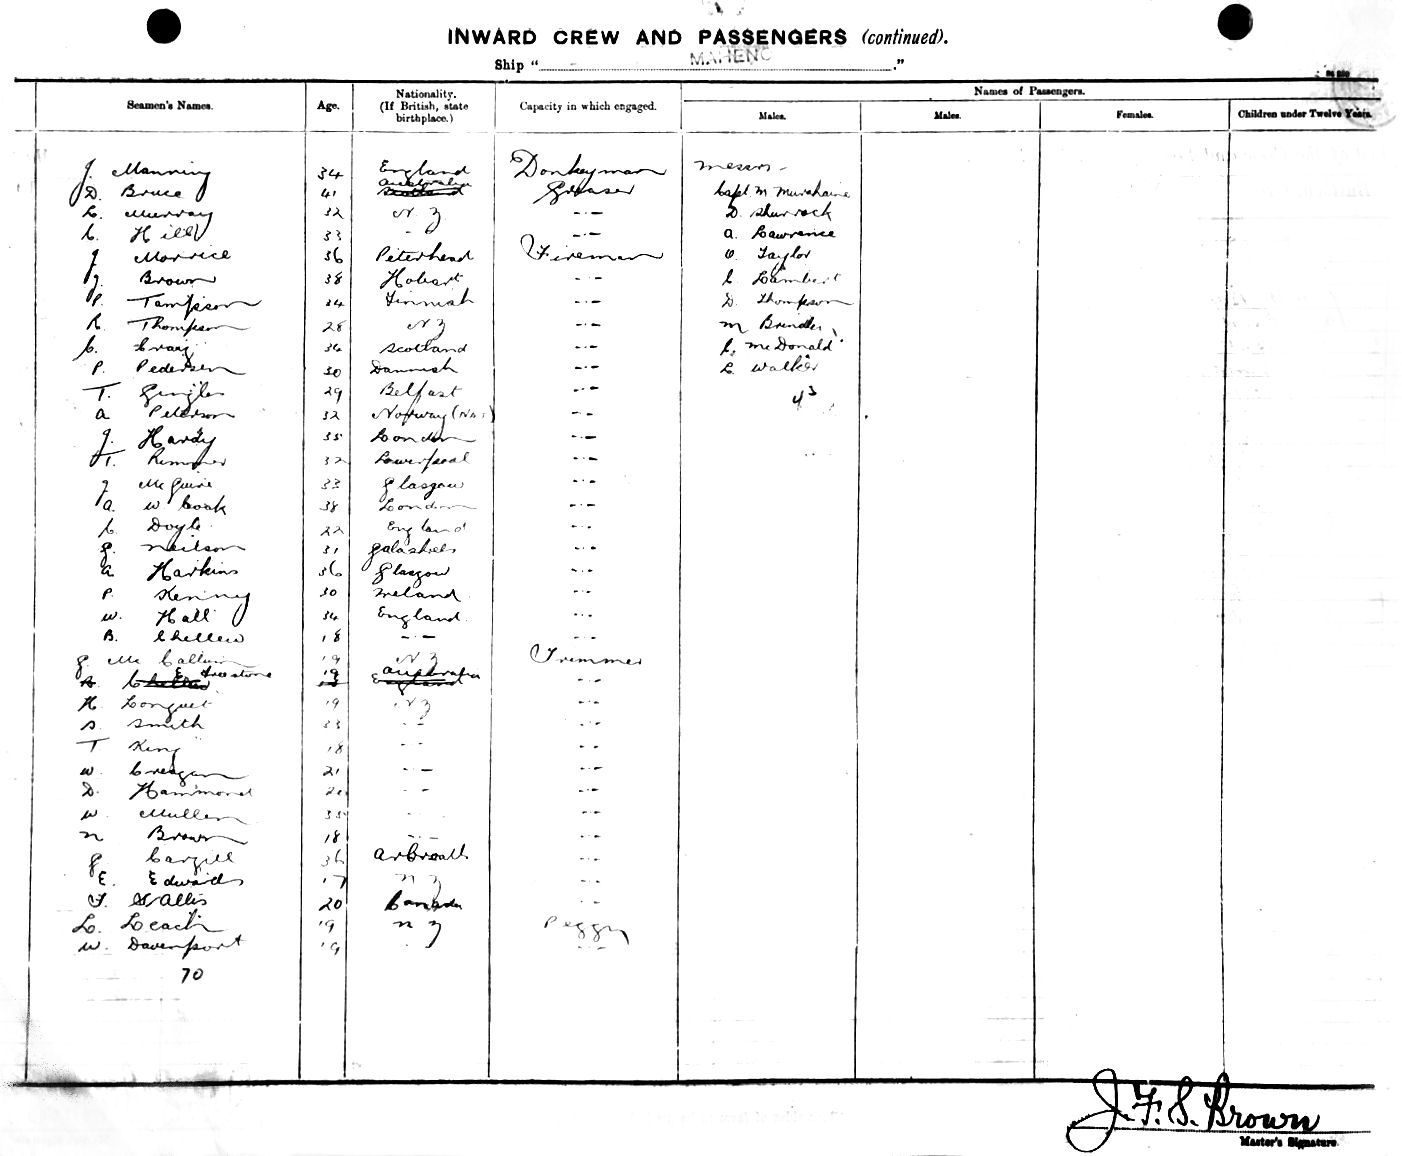 INWARD CREW AND PASSENGERS (continued).
Ship " MAHENO ."
Names of Passengers.
Seamen's Names. Age. Nationality. (If British, state birthplace.) Capacity in which engaged. Males. Males. Females. Children under Twelve Years.
J. Manning 34 England Donkeyman Messrs -
D. Bruce 41 Australia Scotland Greaser Capt. M.
L. Murray 32 N Z -.- D. Sharrock
C. Hill 33 - -.- A. Lawrence
J. Morrice 36 Peterhead Fireman O. Taylor
J. Brown 38 Hobart -.- C. Lambert
P. 24 Finnish -.- D. Thompson
R. Thompson 28 N Z -.- M
C. Craig 34 Scotland -.- C. McDonald
P. Pedersen 30 Dannish -.- L. Walker
T. 29 Belfast -.- 43
A Peterson 32 Norway -.-
J. Hardy 35 London -.-
T. Rimmer 32 -.-
J McGuire 33 Glasgow -.-
A. W Cook 38 London -.-
C Doyle 22 England -.-
G. Neilson 31 Galashiels -.-
A Harkins 36 Glasgow -.-
P. Kenny 30 Ireland -.-
W. Hall 34 England -.-
B. Chellew 18 -.- -.-
G. McCallum 19 N Z Trimmer
E Freestone 19 Australia England -.-
H. Longuet 19 N Z -.-
S. Smith 23 -.- -.-
T King 18 -.- -.-
W. Creegan 21 -.- -.-
D. Hammond -.- -.-
W. Mullen 35 -.-
N Brown 18 -.- -.-
G. Cargill 36 Arbroath -.-
E. Edwards 17 N Z -.-
F. Wallis 20 Canada -.-
L. Leach 19 N Z Peggy
W. Davenport 19 -.-
70
J. F. S. Brown
Master's Signature.